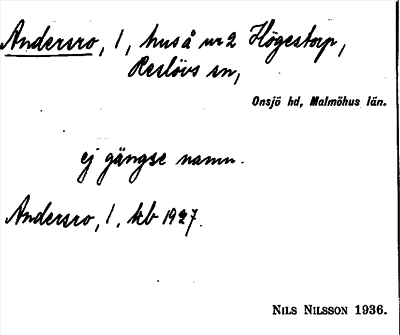 Andersro, l, hus å nr 2 Högestorp,
Reslövs sn,
Onsjö hd, Malmöhus län.
ej gängse namn.
Andersro, l. kb 1927.
NILS NILSSON 1936.